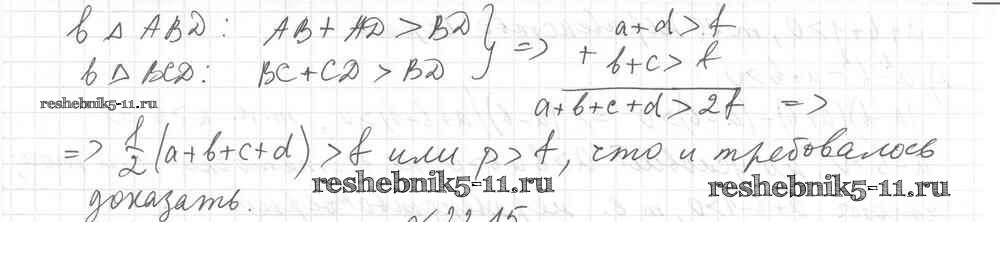 в △ ABD: AB + AD > BD } => a+d > f
в △ BCD: BC + CD > BD + b+c > f
reshebnik5-11.ru
a+b+c+d > 2f =>
=> 1/2 (a+b+c+d) > f или p > f, что и требовалось
reshebnik5-11.ru reshebnik5-11.ru
доказать.